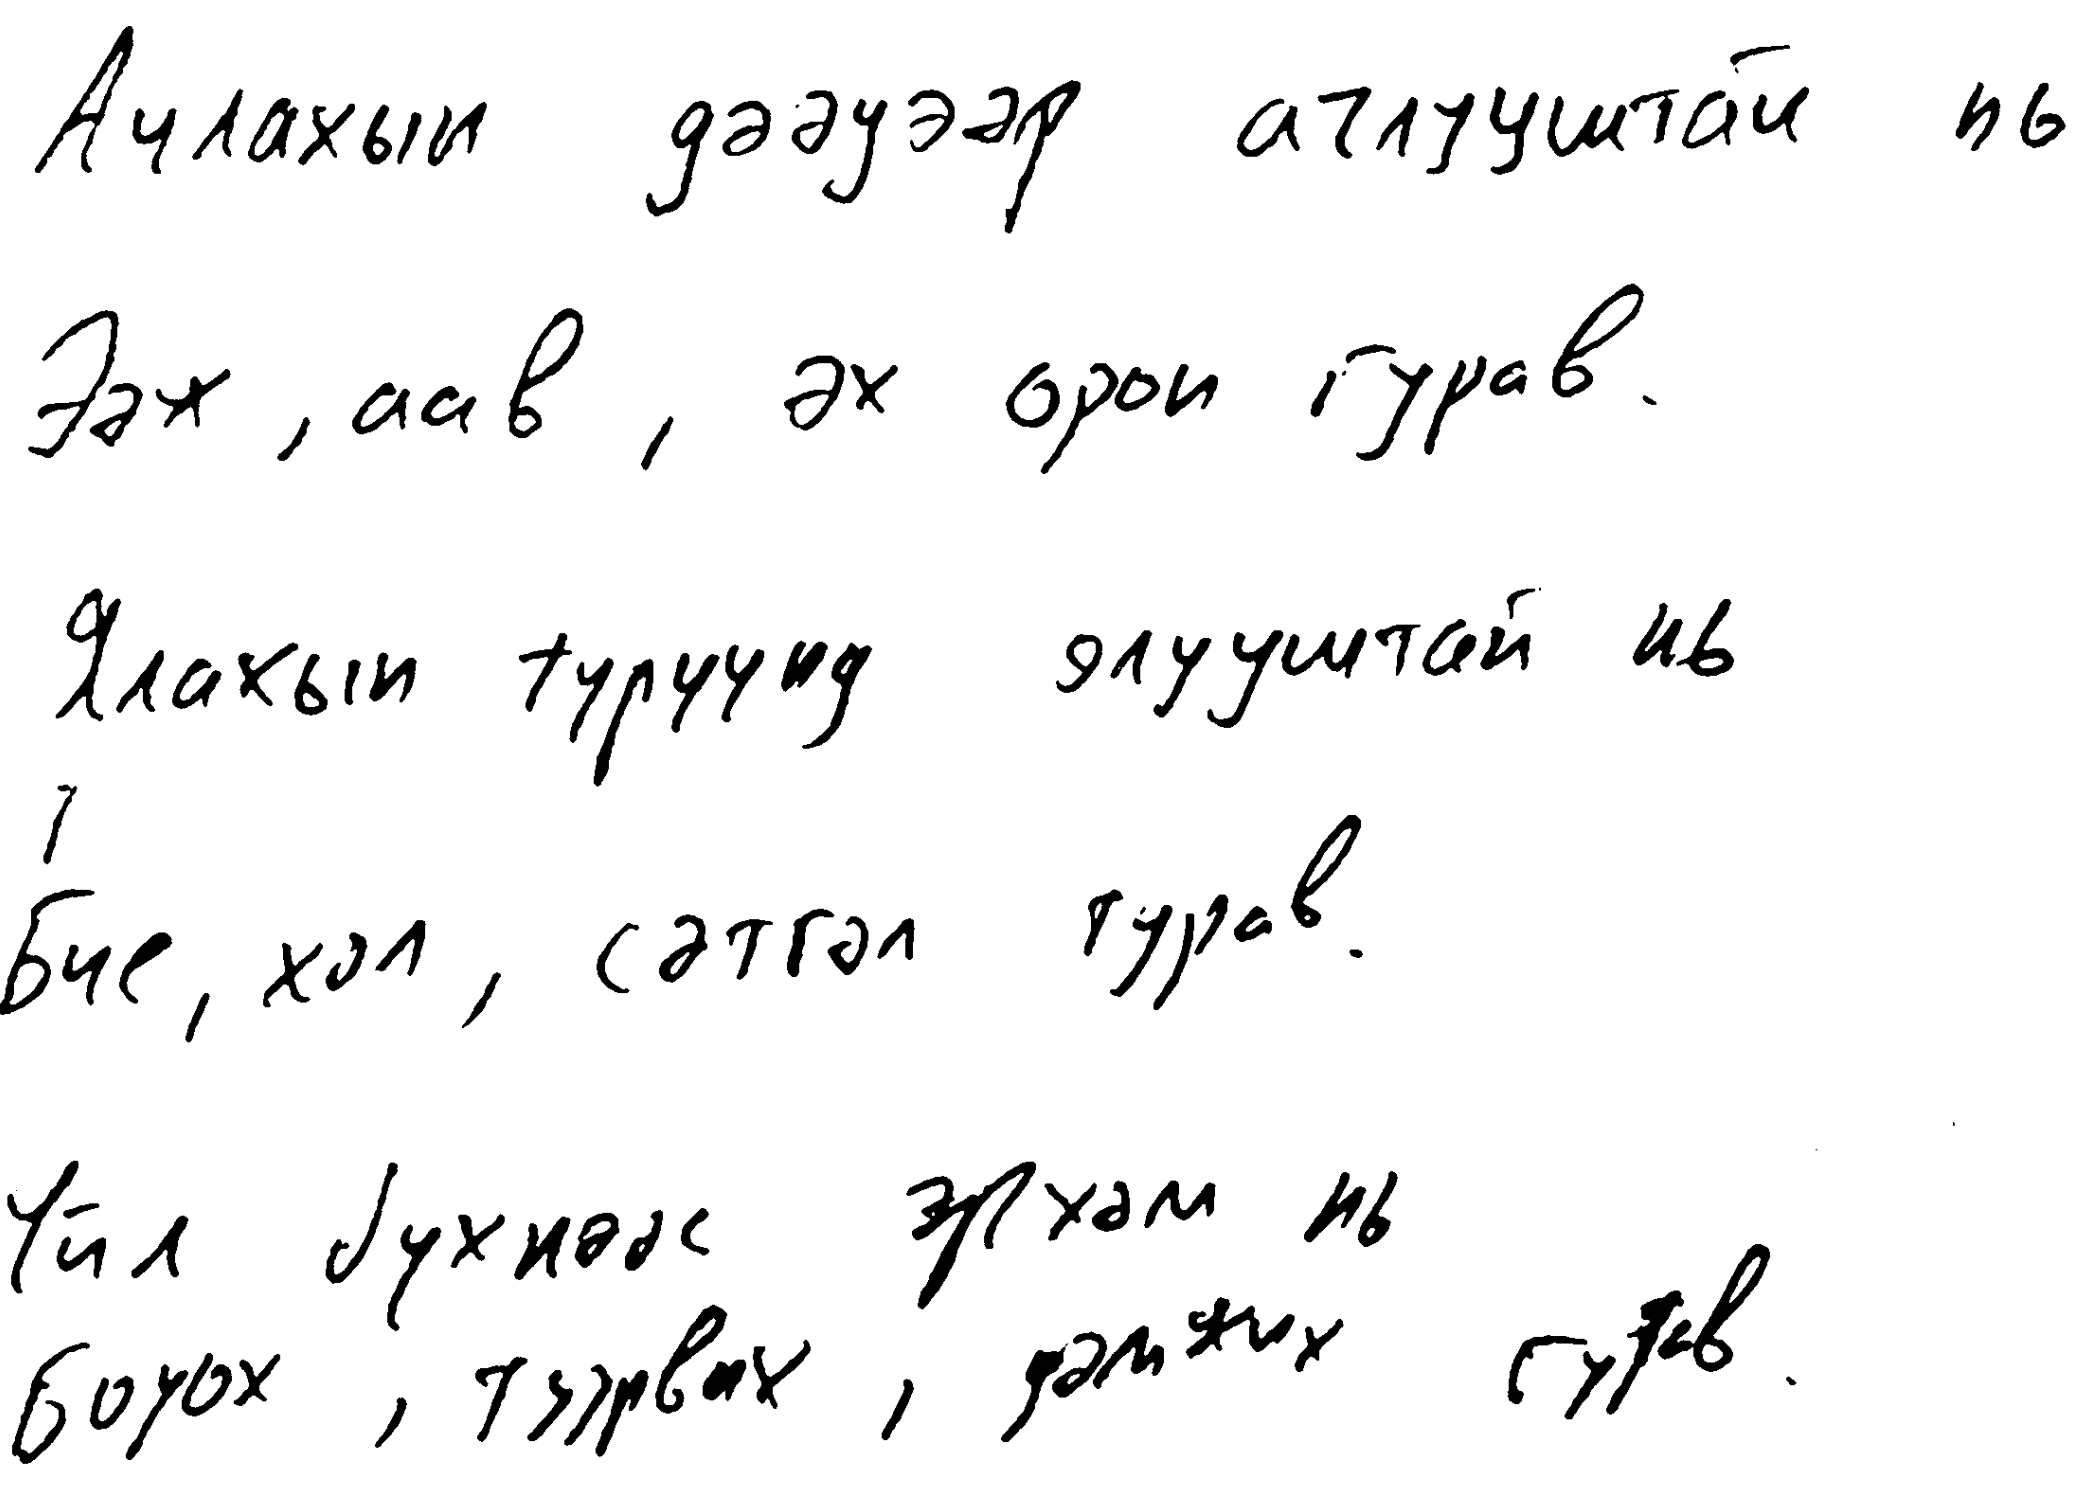 Ачлахын дээуээр ачлууштай нь
Ээж, аав, эх орон гурав.
Ялахын туруунд ялууштай нь
Бие, хэл, сэтгэл гурав.
Үйл бүхнээс эрхэм нь
Бодох, туурвих, дэмжих гурав.